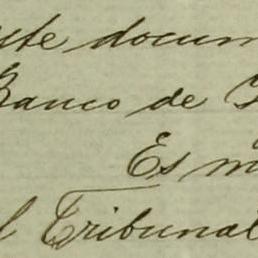 este docum
Banco de
Es m
l Tribunal